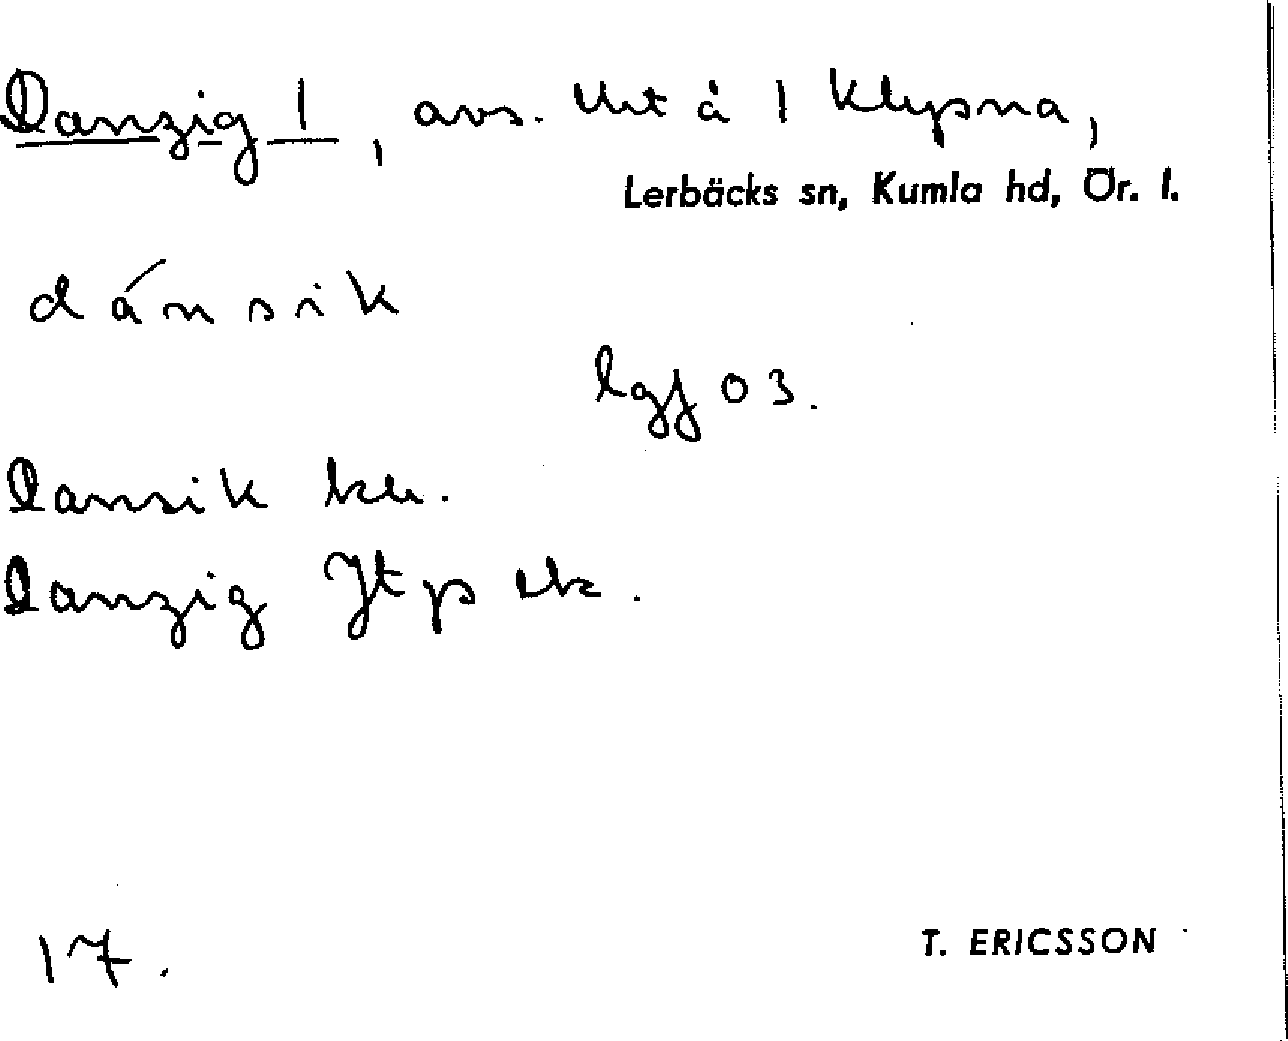 Danzig 1, avs. lht å 1 Klypsna,
Lerbäcks sn, Kumla hd, Ör. l.
dánsik
lgf 03.
Dansik
Danzig Jt p
17.
T. ERICSSON